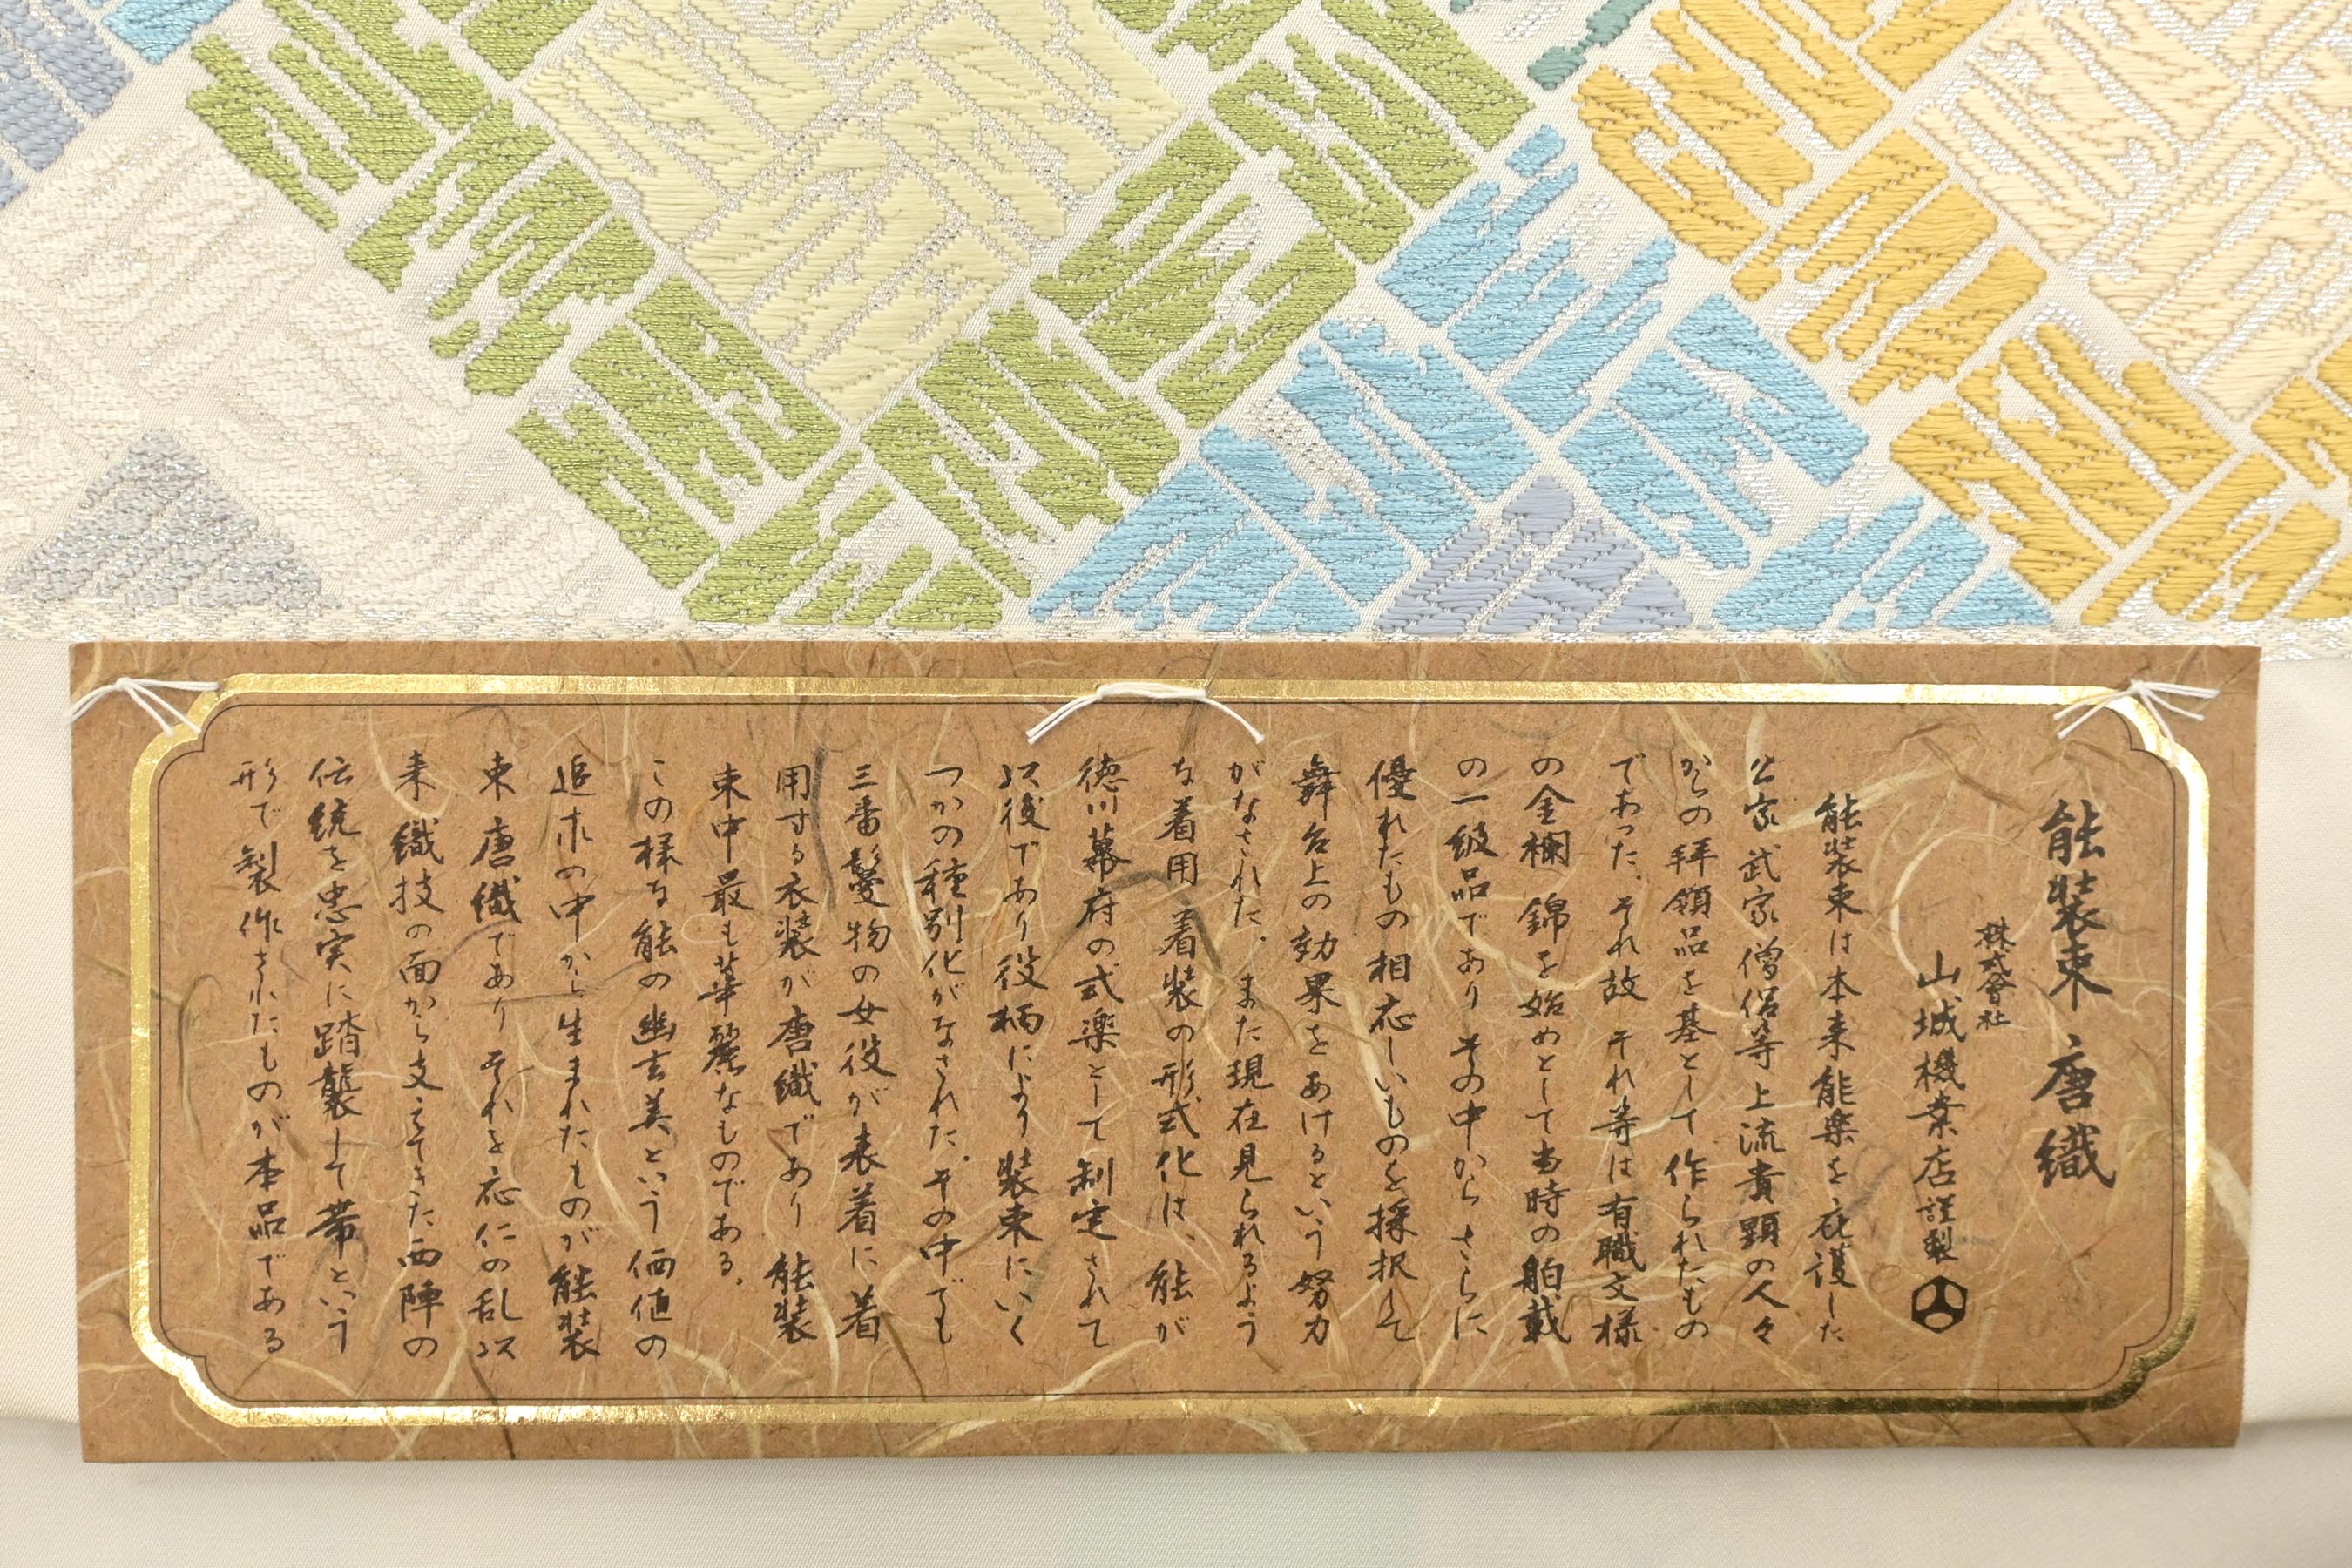 能装束 唐織
株式會社
山城機業店謹製
能装束は本来能楽を庇護した
公家 武家 僧侶等上流貴顕の人々
からの拝領品を基として作られたもの
であった、それ故 それ等は有職文様
の金襴 錦を始めとして当時の舶載
の一級品であり その中から さらに
優れたもの相応しいものを採択して
舞台上の効果をあげるという努力
がなされた、また現在見られるよう
な着用 着装の形式化は、能が
徳川幕府の式楽として制定されて
以後であり役柄により装束にいく
つかの種別化がなされた、その中でも
三番鬘物の女役が表着に着
用する衣装が唐織であり 能装
束中最も華麗なものである、
この様な能の幽玄美という価値の
追求の中から生まれたものが能装
束唐織であり それを応仁の乱以
来織技の面から支えてきた西陣の
伝統を忠実に踏襲して帯という
形で製作されたものが本品である